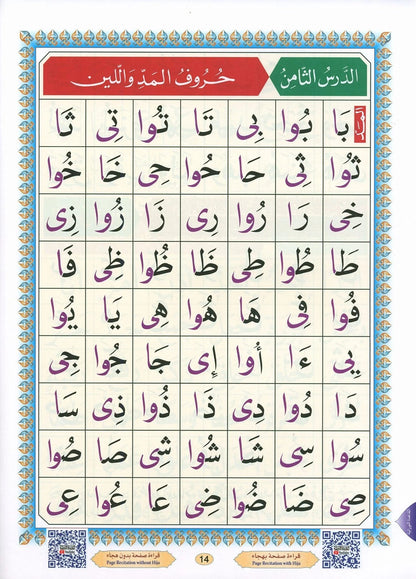 الدَّرسُ الثَّامِنُ حُرُوفُ المَدِّ وَاللِّين
المَدّ
بَا بُوا بِى تَا تُوا تِى ثَا
ثُوا ثِى حَا حُوا حِى خَا خُوا
خِى رَا رُوا رِى زَا زُوا زِى
طَا طُوا طِى ظَا ظُوا ظِى فَا
فُوا فِى هَا هُوا هِى يَا يُوا
يِى ءَا أُوا إِى جَا جُوا جِى
دَا دُوا دِى ذَا ذُوا ذِى سَا
سُوا سِى شَا شُوا شِى صَا صُوا
صِى ضَا ضُوا ضِى عَا عُوا عِى
قراءة صفحة بهجاء
Page Recitation with Hija
14
قراءة صفحة بدون هجاء
Page Recitation without Hija